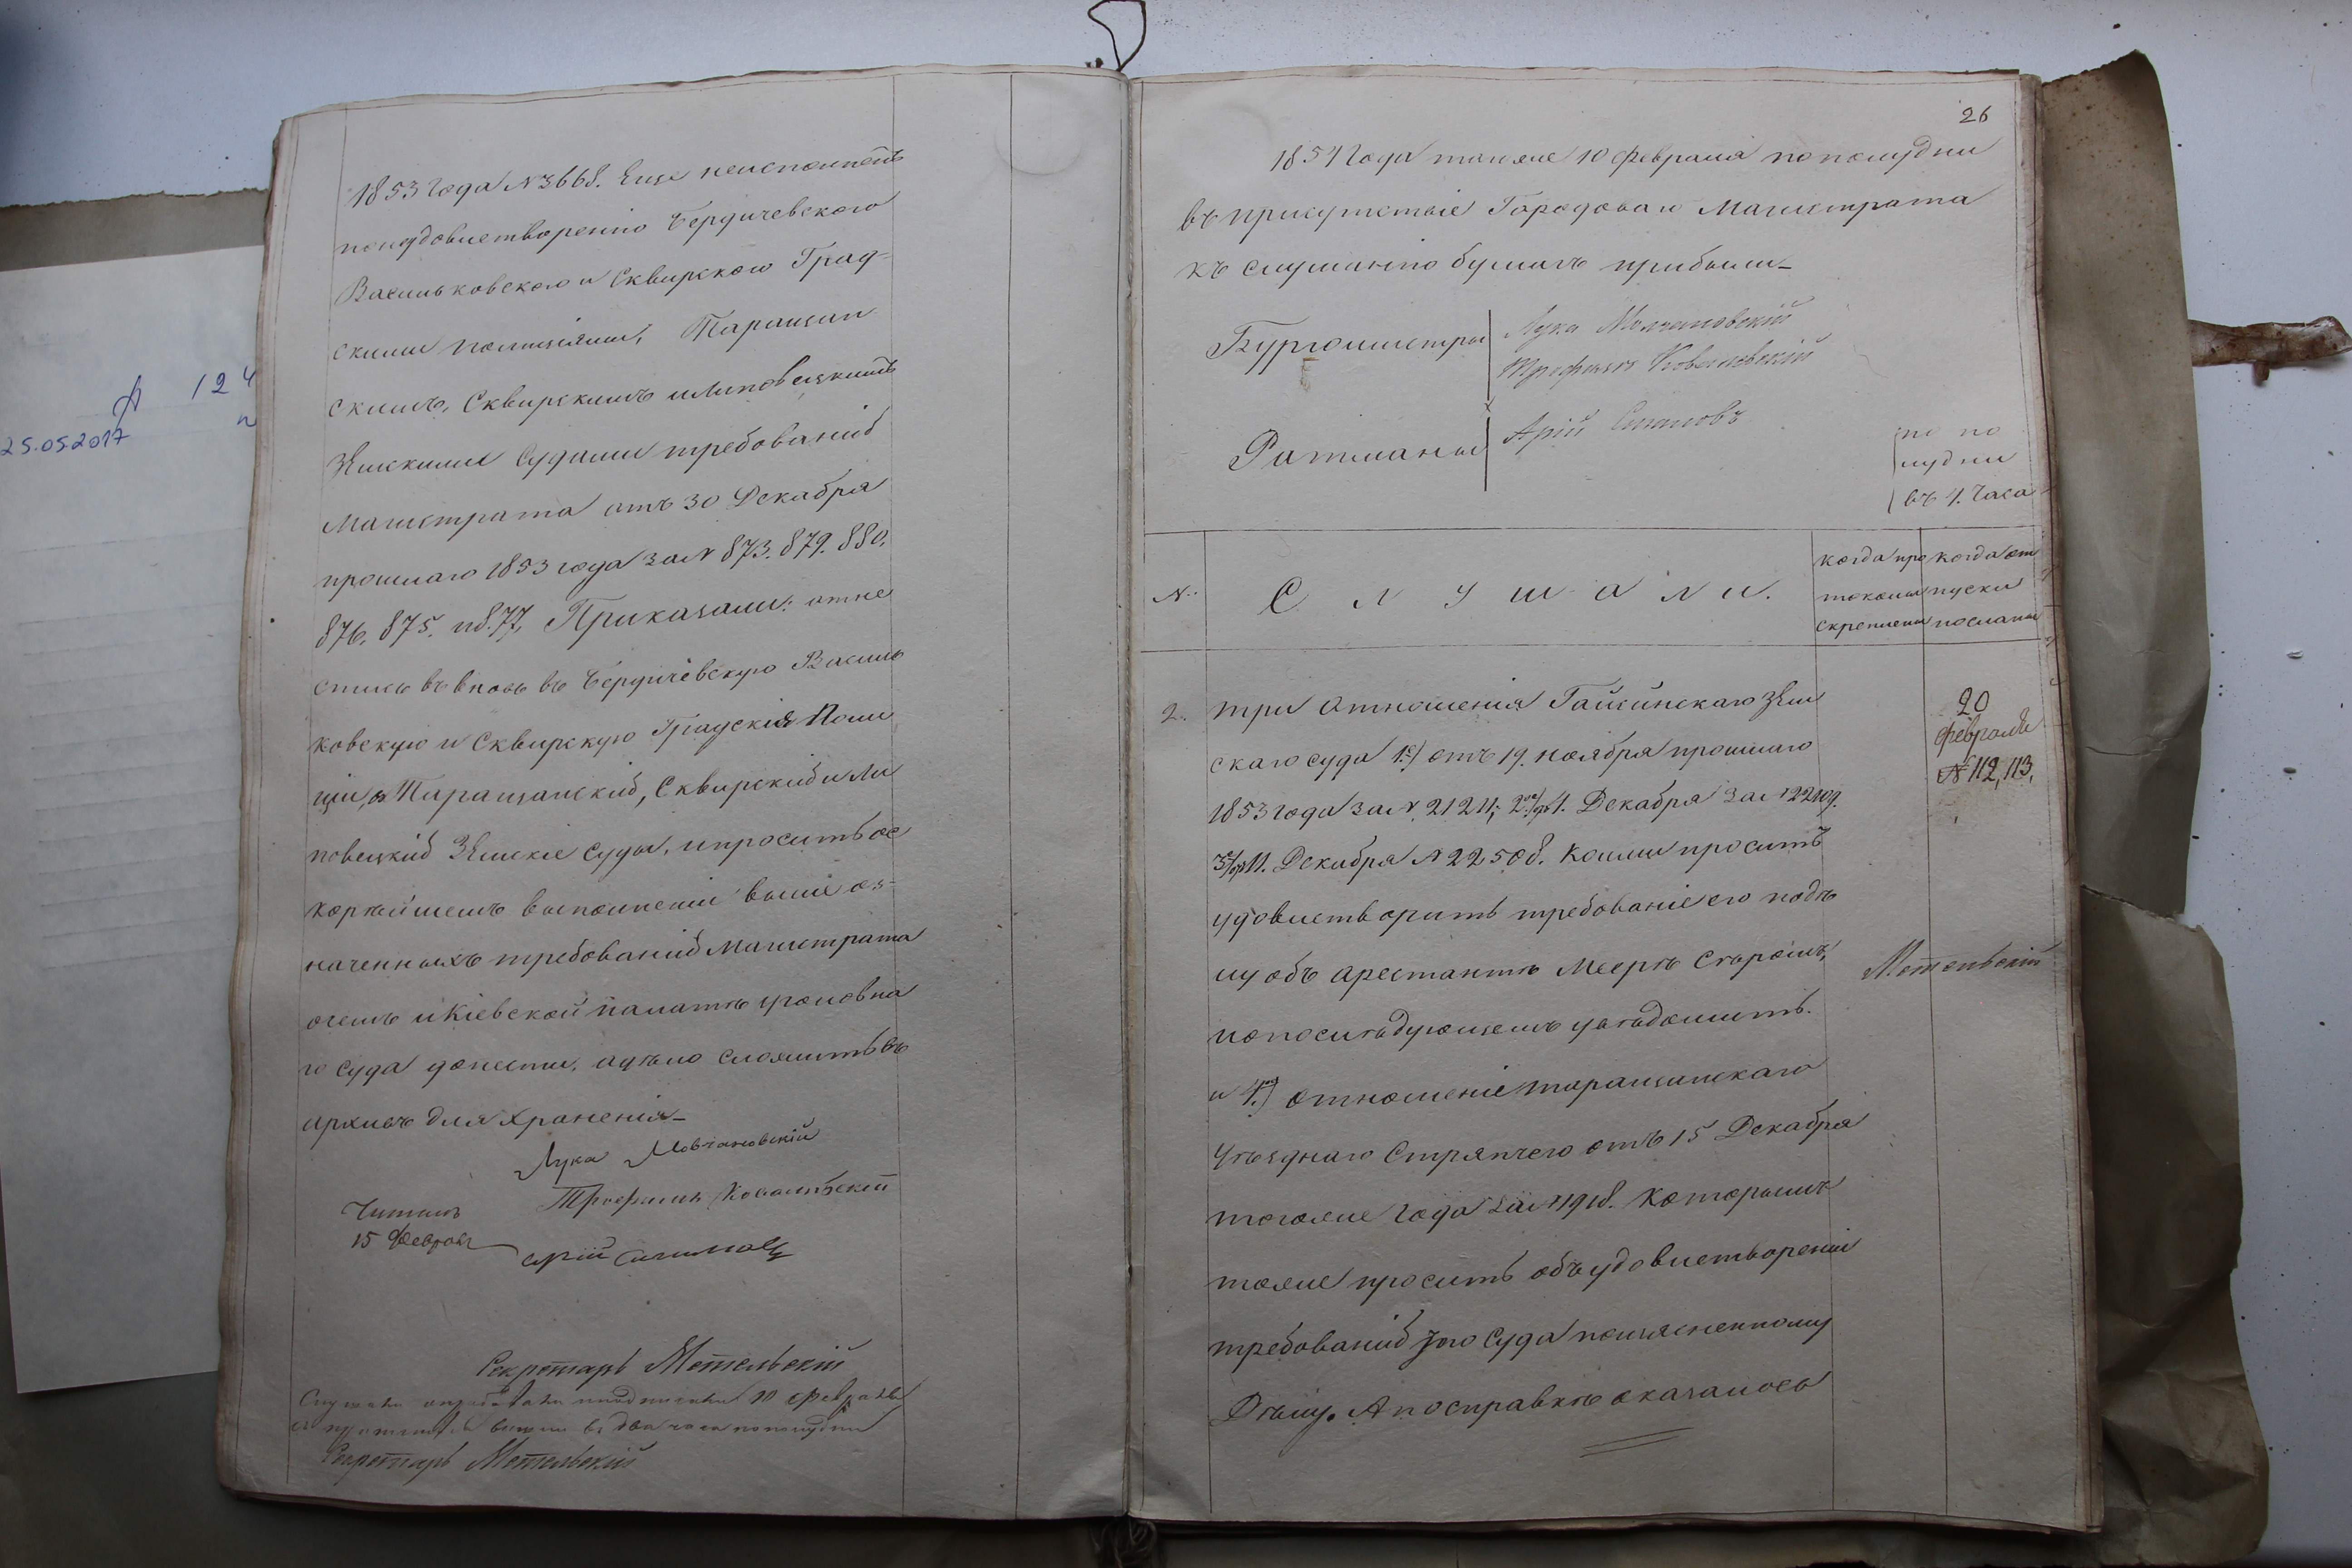 25.05.2017
124
1853 года N 3668. Еще неисполненъ
поудовлетворенію Бердичевскаго
Васильковскаго и Сквирскаго Град-
скими Полиціями, Таращан
скимъ, Сквирскимъ и Липовецкимъ
Земскими Судами требованій
Магистрата отъ 30 Декабря
прошлаго 1853 года за N 873. 879. 880.
876. 875. и 877, Приказали: отне
стись въ вновь въ Бердичевскую Василь
ковскую и Сквирскую Градскія Поли
ціи, въ Таращанскій, Сквирскій и Ли
повецкій Земскіе Суды, и просить ос
корѣйшемъ выполненіи выше оз-
наченныхъ требованій Магистрата
очемъ и Кіевской палатѣ уголовна
го Суда донести, а дѣло сложить въ
архивъ для храненія_
Лука Мовчановскій
Трофимъ Ковалевскій
Читалъ
15 Февраля
Арій
Секретарь Метельскій
10 февраля
въ два часа пополудни
Секретарь Метельскій
26
1854 Года тогоже 10 февраля пополудни
въ присутствіе Городоваго Магистрата
къ слушанію бумагъ прибыли_
Бургомистры
Лука Молчановскій
Трофимъ Ковалевскій
Ратманы
Арій
по по
лудни
въ 4. часа
N.
Слушали.
когда про
токолы
скреплены
когда от
пуски
посланы
2. три Отношенія Гайсинскаго Зем
скаго суда 1е) отъ 19. ноября прошлаго
1853 года за N 21211; 2е) отъ 1. Декабря за N
3е) от 11. Декабря N 22508. Коими проситъ
удовлетворить требованіе его подѣ
лу объ арестантѣ Меерѣ
и о послѣдующемъ увѣдомить.
и 4е) отношеніе таращанскаго
Уѣзднаго Стряпчего отъ 15 Декабря
тогоже года за N 1918. которымъ
тоже проситъ объ удовлетвореніи
требованій того Суда поизясненному
Дѣлу. А по справкѣ оказалось
20
февраля
N 112, 113.
Метельскій